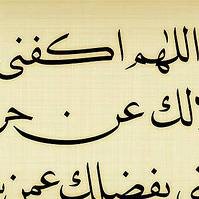 اللهم اكفني
لك عن حر
بفضلك عمن